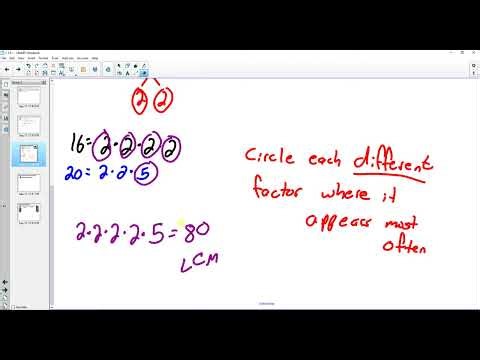 2 2
16=2·2·2·2
20=2·2·5
2·2·2·2·5=80
LCM
Circle each different
factor where it
appears most
often